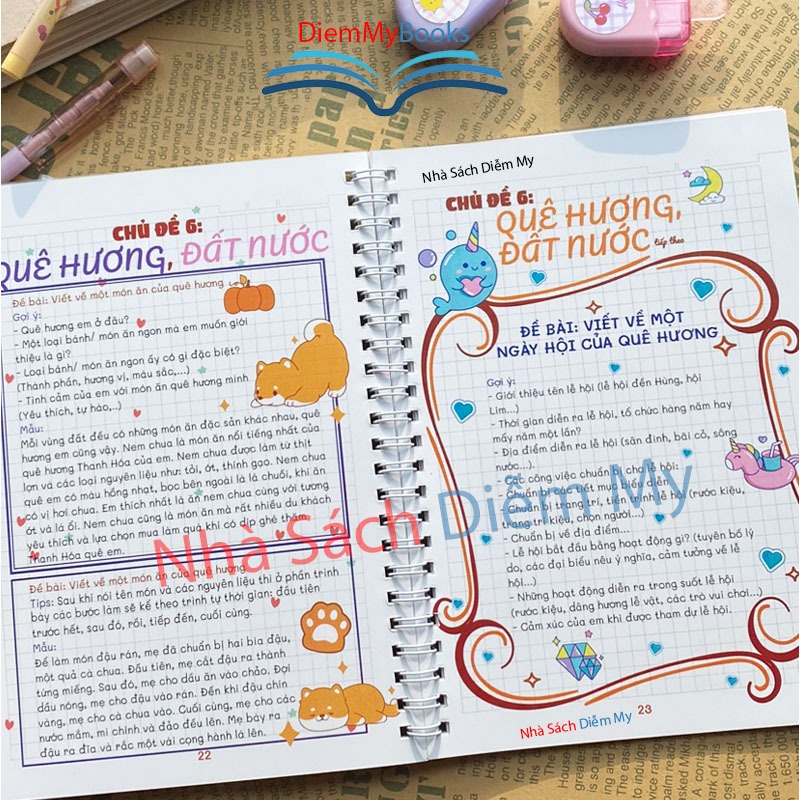 DiemMyBooks
CHỦ ĐỀ 6:
QUÊ HƯƠNG, ĐẤT NƯỚC
Đề bài: Viết về một món ăn của quê hương
Gợi ý:
- Quê hương em ở đâu?
- Một loại bánh/ món ăn ngon mà em muốn giới
thiệu là gì?
- Loại bánh/ món ăn ngon ấy có gì đặc biệt?
(Thành phần, hương vị, màu sắc,...)
- Tình cảm của em với món ăn quê hương mình
(Yêu thích, tự hào,...)
Mẫu:
Mỗi vùng đất đều có những món ăn đặc sản khác nhau, quê
hương em cũng vậy. Nem chua là món ăn nổi tiếng nhất của
quê hương Thanh Hóa của em. Nem chua được làm từ thịt
lợn và các loại nguyên liệu như: tỏi, ớt, thính gạo. Nem chua
quê em có màu hồng nhạt, bọc bên ngoài là lá chuối, khi ăn
có vị hơi chua. Em thích nhất là ăn nem chua cùng với tương
ớt và lá ổi. Nem chua cũng là món ăn mà rất nhiều du khách
yêu thích và lựa chọn mua làm quà khi có dịp ghé thăm
Thanh Hóa quê em.
Đề bài: Viết về một món ăn của quê hương
Tips: Sau khi nói tên món và các nguyên liệu thì ở phần trình
bày các bước làm sẽ kể theo trình tự thời gian: đầu tiên
trước hết, sau đó, rồi, tiếp đến, cuối cùng.
Mẫu:
Để làm món đậu rán, mẹ đã chuẩn bị hai bìa đậu,
một quả cà chua. Đầu tiên, mẹ cắt đậu ra thành
từng miếng. Sau đó, mẹ cho dầu ăn vào chảo. Đợi
dầu nóng, mẹ cho đậu vào rán. Đến khi đậu chín
vàng, mẹ cho cà chua vào. Cuối cùng, mẹ cho các
nước mắm, mì chính và đảo đều lên. Mẹ bày ra
đậu ra đĩa và rắc một vài cọng hành lá lên.
22
Nhà Sách Diễm My
CHỦ ĐỀ 6:
QUÊ HƯƠNG,
ĐẤT NƯỚC tiếp theo
ĐỀ BÀI: VIẾT VỀ MỘT
NGÀY HỘI CỦA QUÊ HƯƠNG
Gợi ý:
- Giới thiệu tên lễ hội (lễ hội đền Hùng, hội
Lim...)
- Thời gian diễn ra lễ hội, tổ chức hàng năm hay
mấy năm một lần?
- Địa điểm diễn ra lễ hội (sân đình, bãi cỏ, sông
nước...).
- Các công việc chuẩn bị cho lễ hội:
Chuẩn bị tiết mục biểu diễn
Chuẩn bị trang trí, tiến trình lễ hội (rước kiệu,
trang trí kiệu, chọn người...)
- Chuẩn bị về địa điểm...
- Lễ hội bắt đầu bằng hoạt động gì? (tuyên bố lý
do, các đại biểu nêu ý nghĩa, cảm tưởng về lễ
hội...)
- Những hoạt động diễn ra trong suốt lễ hội
(rước kiệu, dâng hương lễ vật, các trò vui chơi...)
- Cảm xúc của em khi được tham dự lễ hội.
23
Nhà Sách Diễm My
Nhà Sách Diễm My